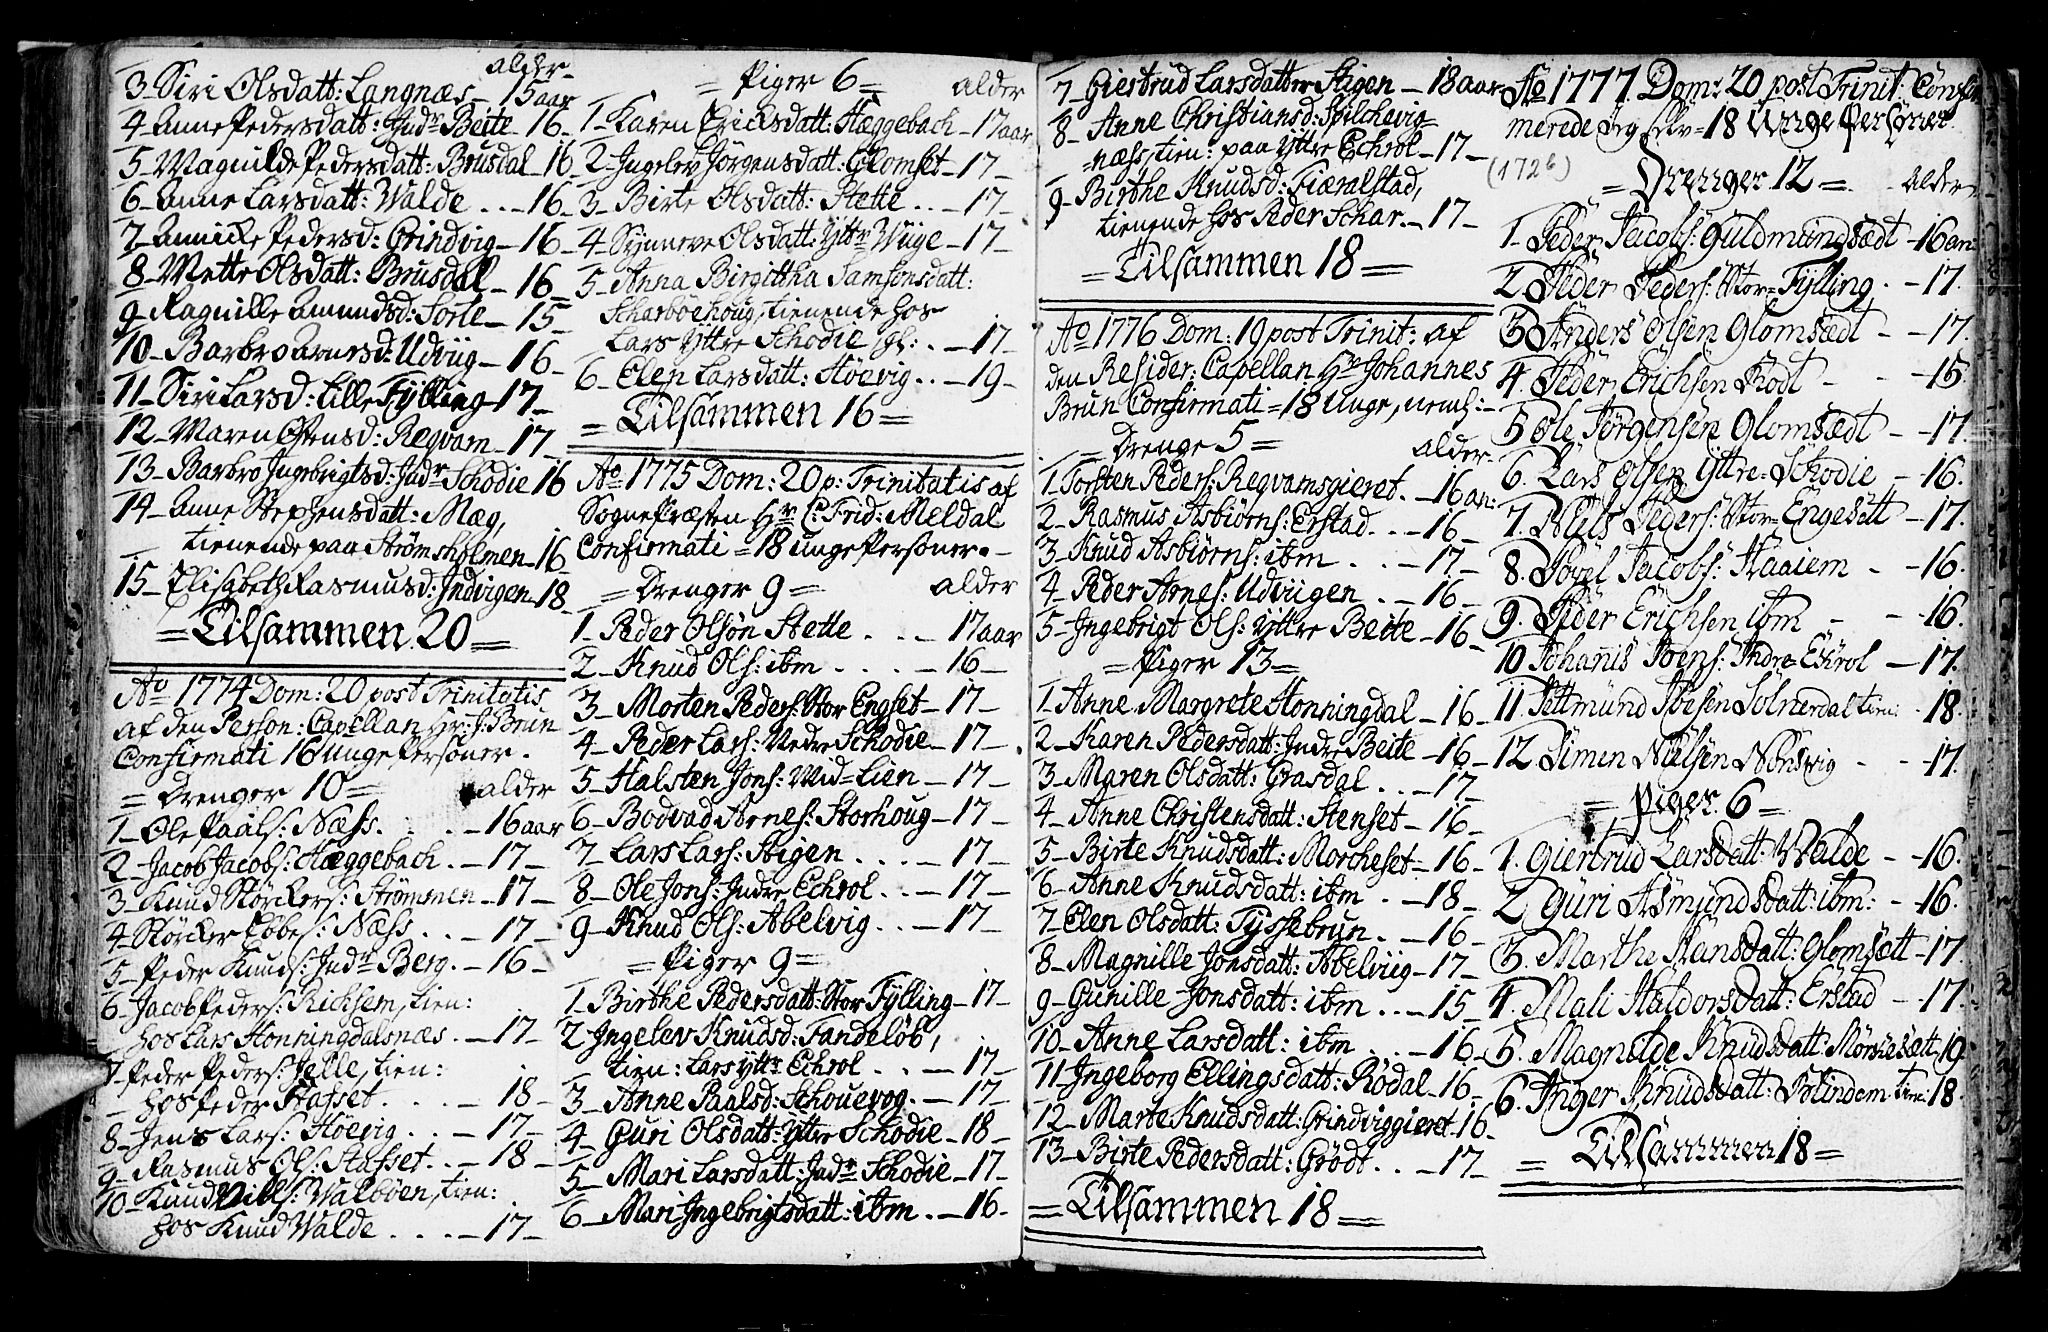 alder
3. Siri Olsdatt: Langnæs - 15 aar
4 - Anne Pedersdatt: Indr Beite - 16 -
5 - Magnilde Pedersdatt: Brusdal 16
6 - Anne Larsdatt: Walde . . - 16 -
7 - Annicke Pedersd: Grindvig - 16 -
8 - Mette Olsdatt: Brusdal - 16 -
9 - Ragnille Amundsd: Sorte - 15 -
10 - Barbro Arnesd: Udviig - 16 -
11 - Siri Larsd: Lille Fylling - 17 -
12 - Maren Ostensd: Reqvam - 17 -
13 - Barbro Ingebrigtsd: Indr Schodie 16
14 - Anne Stephensdatt: Mæg,
tienende paa Strømsholmen - 16 -
15 - Elisabeth Rasmusd: Indvigen - 18 -
= Tilsammen 20 =
Ao 1774 Dom: 20 post Trinitatis
af den Person: Capellan Hr: J: Brun
Confirmati 16 unge Personer.
= Drenger 10 = alder
1 - Ole Paals: Næss. . . - 16 aar
2 - Jacob Jacobs: Hæggebach . - 17 -
3 - Knud Størckers: Strømmen - 17 -
4 - Størcker Købes: Næss . . - 17 -
5 - Peder Knuds: Indr Berg. - 16 -
6 - Jacob Peders: Richsem, tien:
hos Lars Honningdalsnæs . - 17 -
7 - Peder Peders: Jelle, tien:
hos Peder Hafset . . . - 18 -
8 - Jens Lars: Høevig . . - 17 -
9 - Rasmus Ols: Hafset. . - 18 -
10 - Knud Nils: Walbøen, tien:
hos Knud Walde . . . - 17 -
= Piger 6 = alder
1 - Karen Ericksdatt: Hæggebach - 17 aar
2 - Ingelev Jörgensdatt: Glomset - 17 -
3 - Birte Olsdatt: Stette . . - 17 -
4 - Synneve Olsdatt: Yttr Wiige - 17 -
5 - Anna Birgittha Samsonsdatt:
Scharbøehoug, tienende hos
Lars Yttre Schodie . - 17 -
6 - Elen Larsdatt: Høevig . . - 19 -
= Tilsammen 16 =
Ao 1775 Dom: 20 p: Trinitatis af
Sognepræsten Hr C: Frid: Meldal
Confirmati = 18 unge Personer. -
= Drenger 9 = alder
1 - Peder Olsøn Stette . . . - 17 aar
2 - Knud Ols: ibm . . . . - 16 -
3 - Morten Peders: Stor Engset - 17 -
4 - Peder Lars: Nedre Schodie - 17 -
5 - Halsten Jons: Wid = Lien - 17 -
6 - Bodvad Arnes: Storhoug - 17 -
7 - Lars Lars: Stigen . . . - 17 -
8 - Ole Jons: Indre Echrol . . - 17 -
9 - Knud Ols: Abelvig . . - 17 -
= Piger 9 =
1 - Birthe Pedersdatt: Stor Fylling - 17 -
2 Ingelev Knudsd: Tandeløb,
tien: Lars yttr Echrol . . - 17 -
3 - Anne Paalsd: Schouevog. - 17 -
4 - Guri Olsdatt: Yttre Schodie - 18 -
5 - Mari Larsdatt: Indr Schodie - 17 -
6 - Mari Ingebrigtsdatt: ibm . - 16 -
7 - Giertrud Larsdatter Stigen - 18 aar
8 - Anne Christiansd: Spilchevig=
=næss, tien: paa Yttre Echrol - 17 -
9 - Birthe Knudsd: Fiæralstad,
tienende hos Peder Schar. - 17 -
= Tilsammen 18 =
Ao 1776 Dom: 19 post Trinit: af
den Resider: Capellan Hr Johannes
Brun Confirmati = 18 unge, neml: -
= Drenge 5 = alder
1 - Torsten Peders: Reqvamsgieret . - 16 aar:
2 - Rasmus Asbiørns: Erstad . . . - 16 -
3 - Knud Asbiørns: ibm . . . - 17 -
4 - Peder Arnes: Udviigen . . - 16 -
5 - Ingebrigt Ols: Yttre Beite - 16 -
= Piger 13 =
1 - Anne Margrete Honningdal - 16 -
2 - Karen Pedersdatt: Indre Beite - 16 -
3 - Maren Olsdatt: Grasdal . . . - 17 -
4 - Anne Christensdatt: Stenset - 16 -
5 - Birte Knudsdatt: Morcheset - 16 -
6 - Anne Knudsdatt: ibm . - 18 -
7 - Elen Olsdatt: Tyssebrun . - 16 -
8 - Magnille Jonsdatt: Abelviig - 17 -
9 - Gunille Jonsdatt: ibm . . - 15 -
10 - Anne Larsdatt: ibm . . . - 16 -
11 - Ingeborg Ellingsdatt: Rødal - 16 -
12 - Marte Knudsdatt: Grindviggieret - 16 -
13 - Birte Pedersdatt: Grødt . . - 17 -
= Tilsammen 18 =
Ao 1777. Dom: 20 post Trinit: Confir
merede Jeg selv = 18 Unge Personer
(1726)
= Drenger 12 = alder
1 - Peder Jacobs: Guldmundsædt - 16 aar:
2. Peder Peders: Stor = Fylling . - 17.
3 Anders Olsen Glomsædt - - 17.
4. Peder Erichsen Grodt - - - 15.
5 Ole Jörgensen Glomsædt - - 17.
6. Lars Olsen Yttre = Schodie - 16.
7. Niels Peders: Stor = Engesætt - 17.
8. Povel Jacobs: Haaiem - - 16.
9. Peder Erichsen ibm - - 16.
10 Johanis Joens: Indre Ekrol - 17.
11. Pettmund Ivesen Solnerdal tien: . 18.
12 Simen Nielsen Nonsvig - - 17.
= Piger 6 =
1. Giertrud Larsdatt: Walde - - 16.
2 Guri Asmundsdatt: ibm: - - 16.
3. Marthe Hansdatt: Glomsætt - 17.
4. Mali Haldorsdatt: Erstad - - 17.
5. Magnilde Knudsdatt: Morsesætt - 19.
6. Inger Knudsdatt: Blindem. tien: 18.
= Tilsammen 18 =